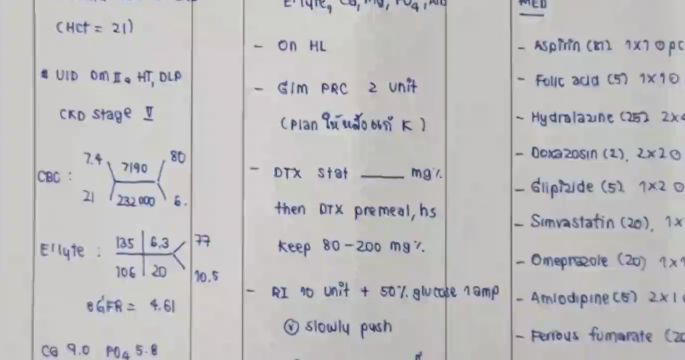 (Hct = 21)
* U/D DM II, HT, DLP
CKD stage V
CBC : 7.4 7190 80
21 232000 6.
E'lyte : 135 6.3 77
106 20 10.5
eGFR = 4.61
Ca 9.0 PO4 5.8
E'lyte, Ca, Mg, PO4, Alb
- on HL
- G/M PRC 2 unit
(Plan ให้หลังแก้ K)
- DTX stat ____ mg%
then DTX premeal, hs
keep 80-200 mg%
- RI 10 unit + 50% glucose 1 amp
Ⓥ slowly push
MED
- Aspirin (81) 1x1 O pc
- Folic acid (5) 1x1 O
- Hydralazine (25) 2x4
- Doxazosin (2), 2x2 O
- Glipizide (5) 1x2 O
- Simvastatin (20), 1x
- Omeprazole (20) 1x1
- Amlodipine (5) 2x1
- Ferrous fumarate (20